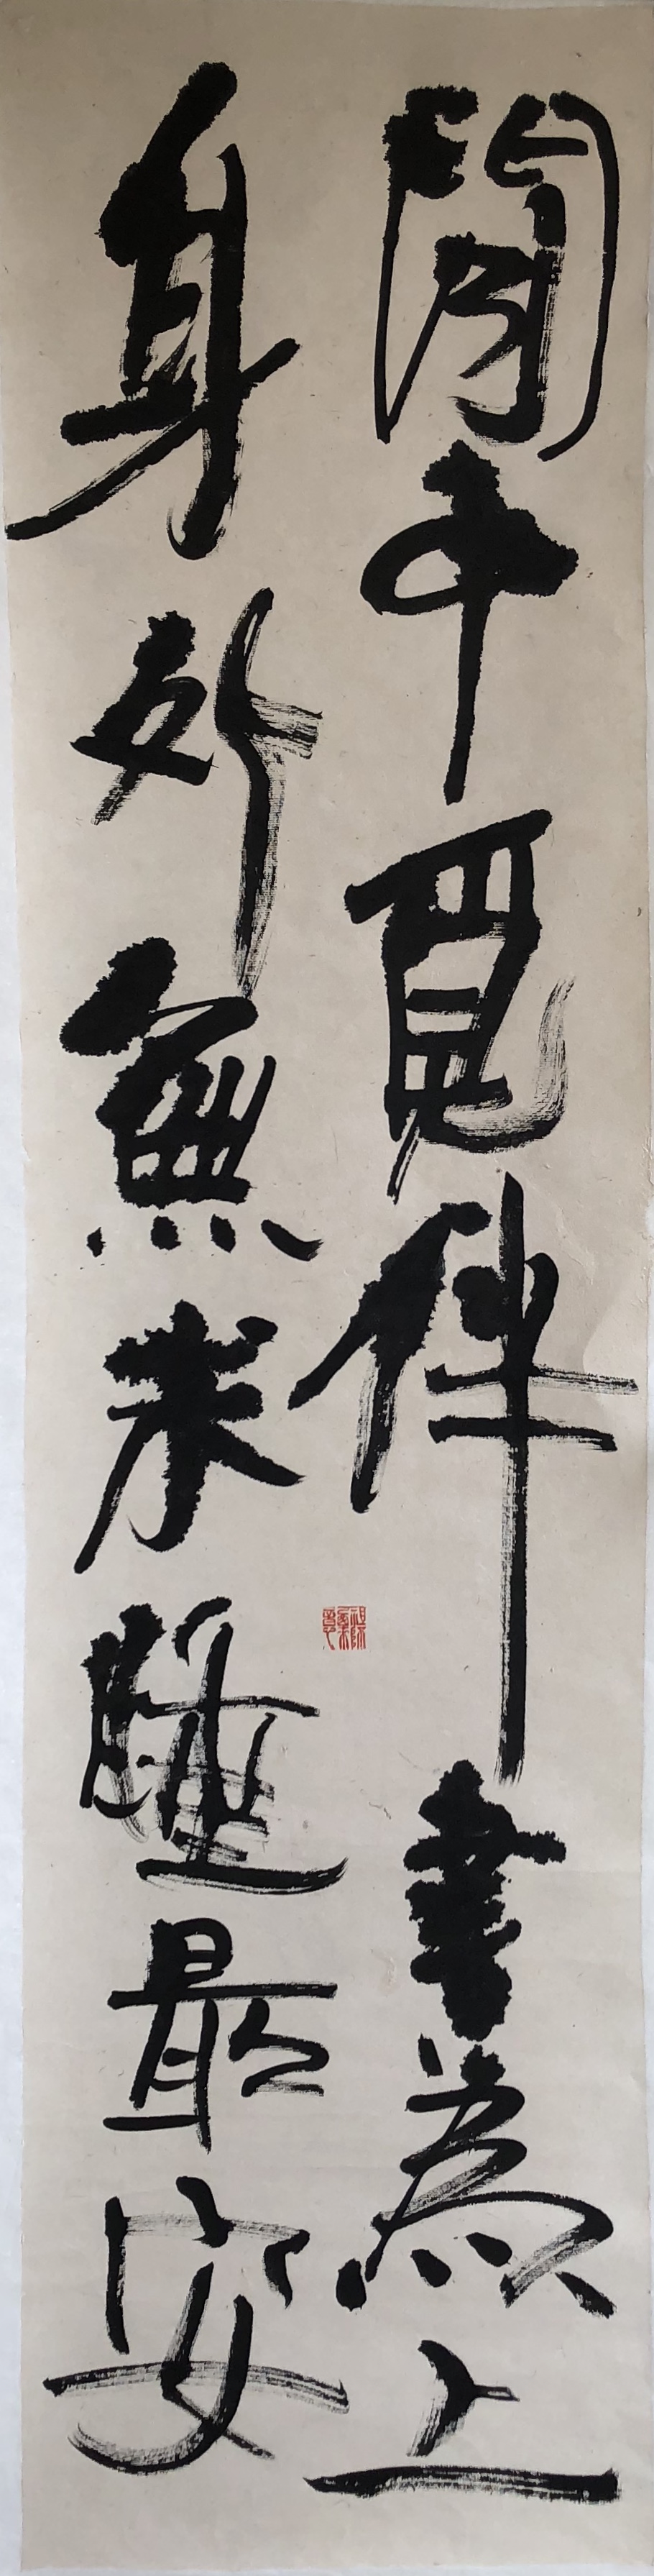 閒中覓伴書爲上
身外無求睡最安